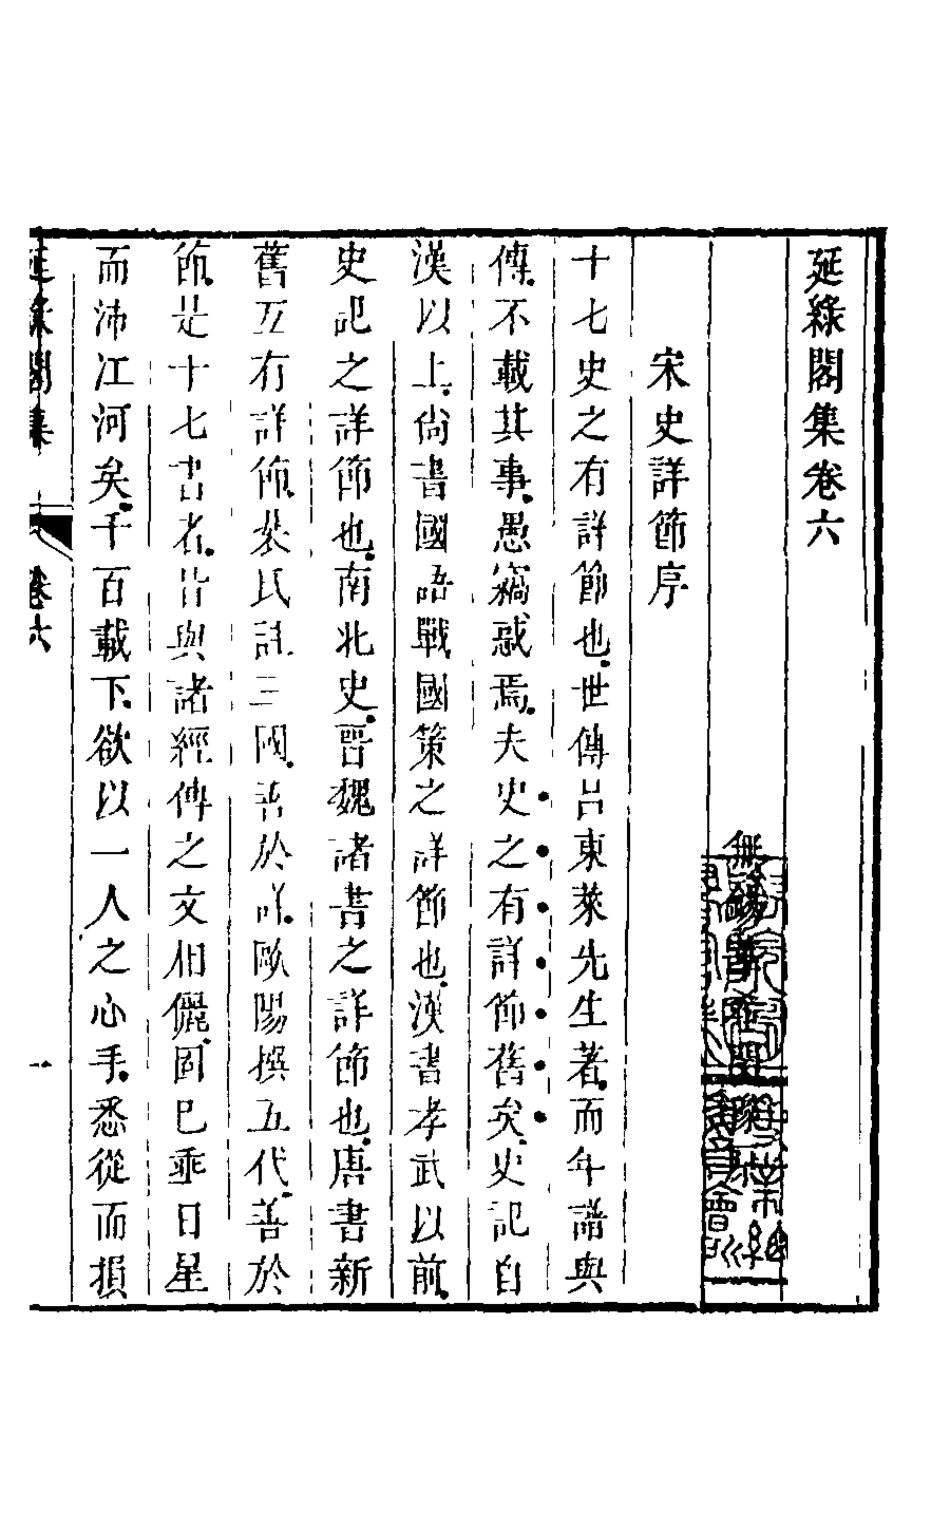 延綠閣集卷六
無錫華希閔
宋史詳節序
十七史之有詳節也世傳呂東萊先生著而年譜與
傳不載其事愚竊惑焉夫史之有詳節舊矣史記自
漢以上尚書國語戰國策之詳節也漢書孝武以前
史記之詳節也南北史晉魏諸書之詳節也唐書新
舊互有詳節裴氏註三國善於詳歐陽撰五代善於
節是十七書者昔與諸經傳之文相儷固已乖日星
而沛江河矣千百載下欲以一人之心手悉從而損
延綠閣集 卷六 一